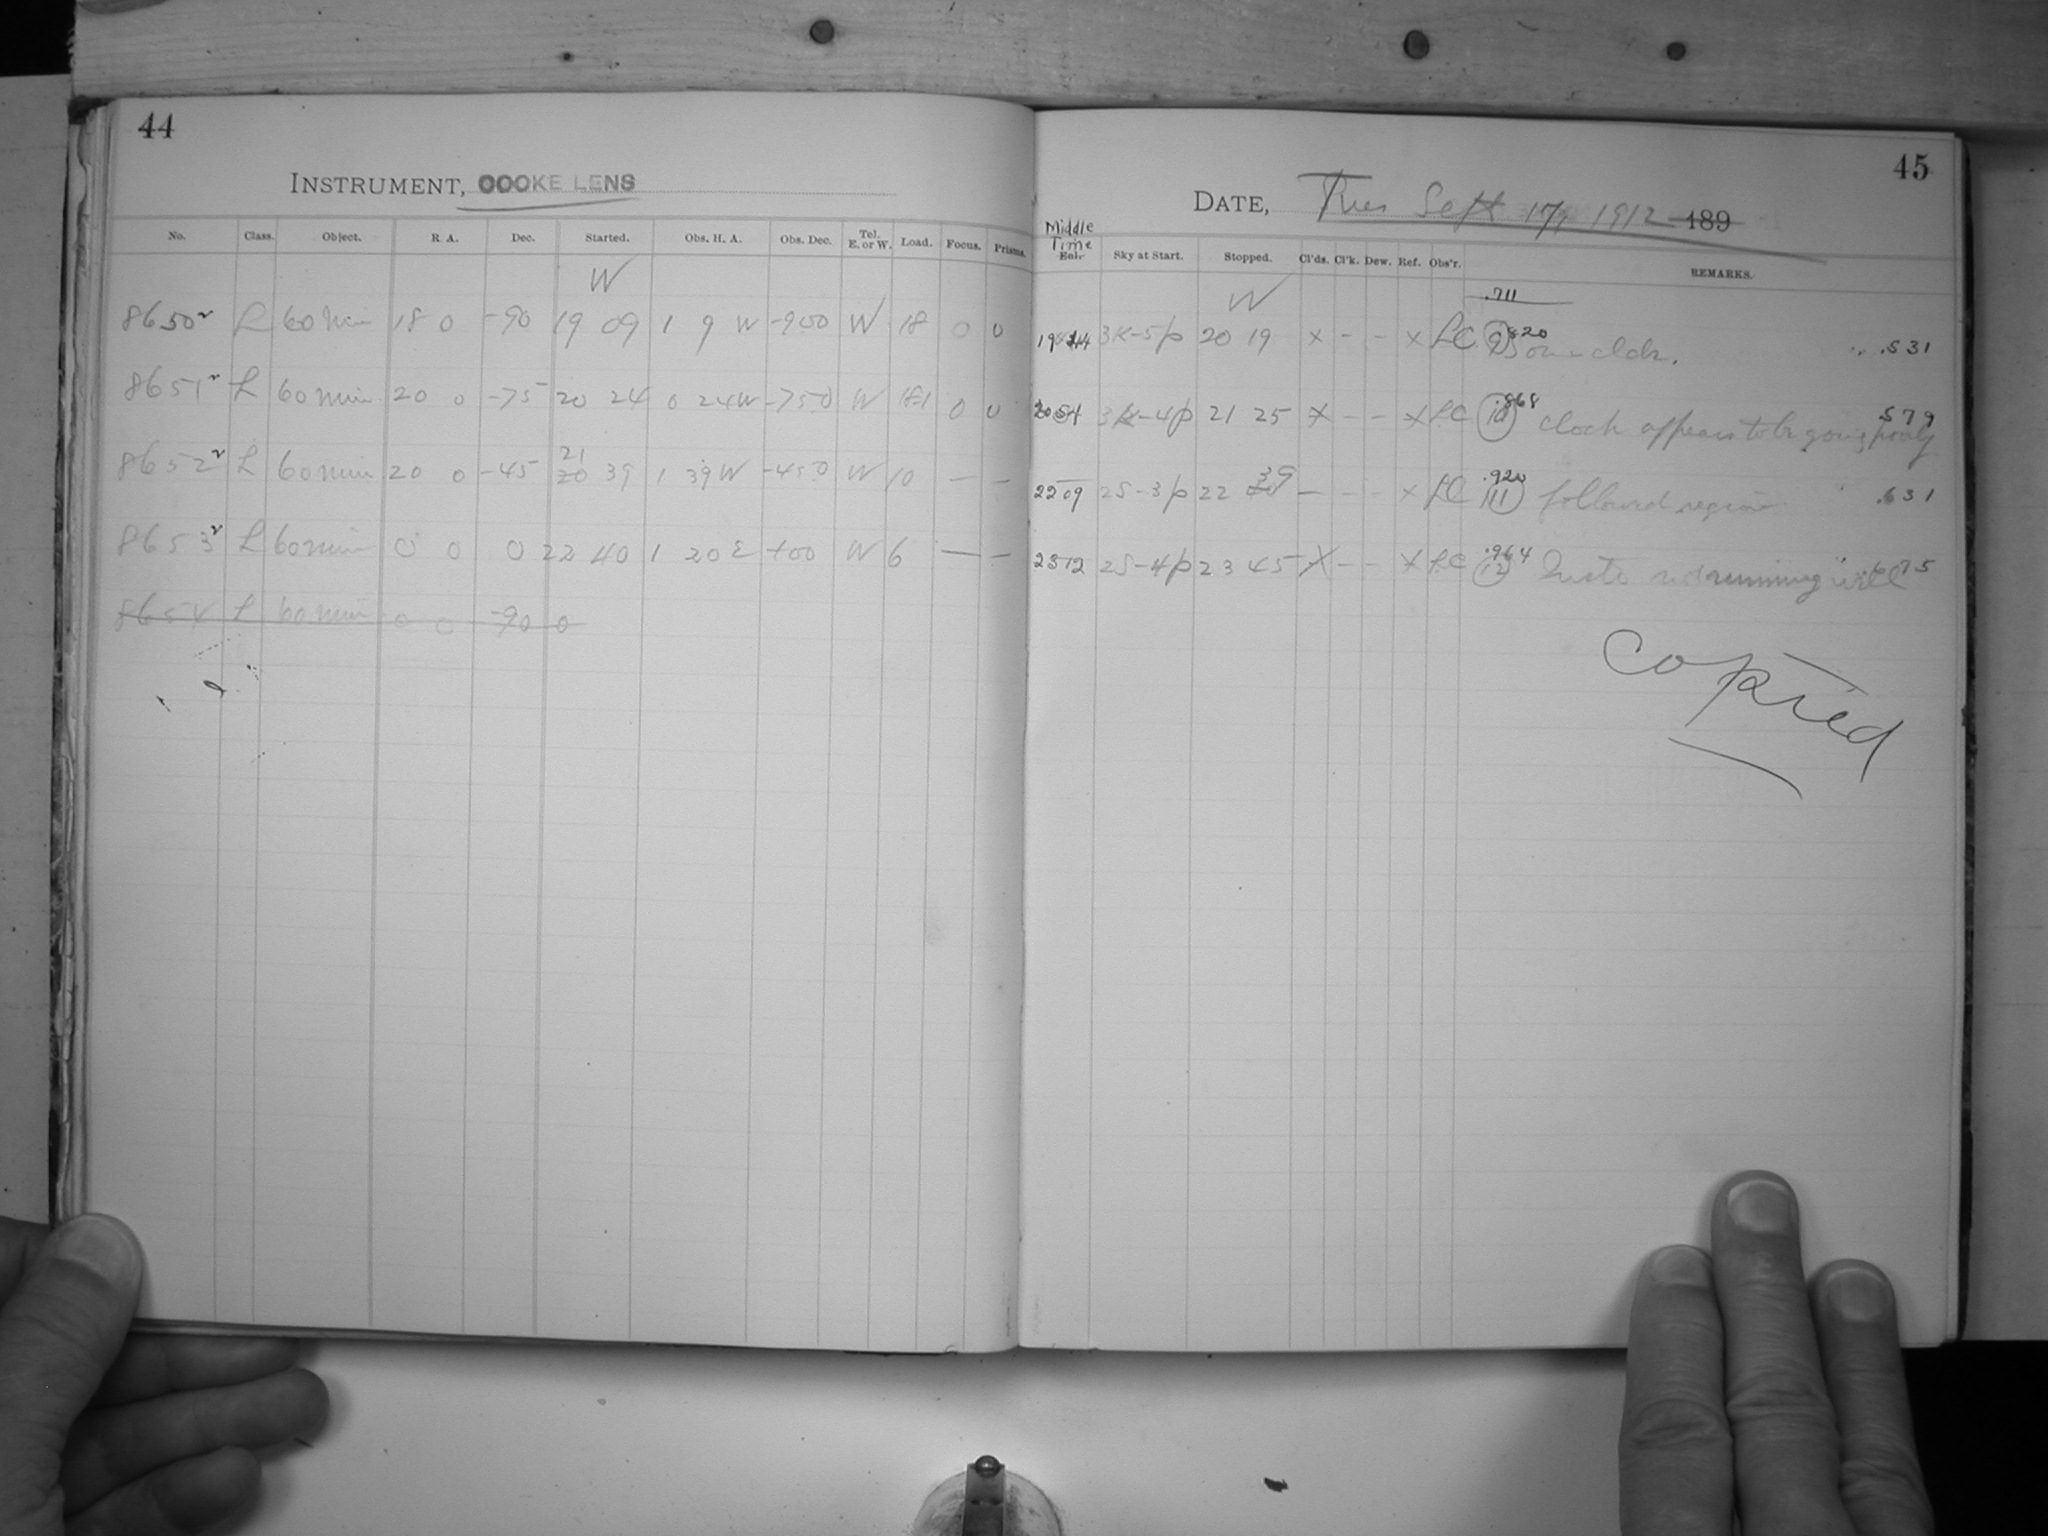 44
INSTRUMENT, COOKE LENS
No. Class. Object. R. A. Dec. Started. Obs. H. A. Obs. Dec. Tel. E. or W. Load. Focus. Prisms.
W
8650 L 60 min 18 0 -90 19 09 1 9 W -900 W 18 0 0
8651 L 60 min 20 0 -75 20 24 0 24W -750 W 18.1 0 0
21
8652 L 60 min 20 0 -45 20 39 1 39W -450 W 10 — —
8653 L 60 min 0 0 0 22 40 1 20 E +00 W 6 — —
8654 L 60 min 0 0 -90 0
45
DATE, Sept 17, 1912 189
Middle
Time
Sky at Start. Stopped. Cl'ds. Cl'k. Dew. Ref. Obs'r. REMARKS.
W .711
19 44 3K-5p 20 19 x - - x LC 9 .820 clock. .531
20 54 3K-4p 21 25 x - - x LC 10 .868 clock appears to be going poorly .579
39
22 09 2S-3p 22 — - - x LC 11 .920 followed region .631
23 12 2S-4p 23 45 x - - x LC 12 .964 not running well .675
Copied